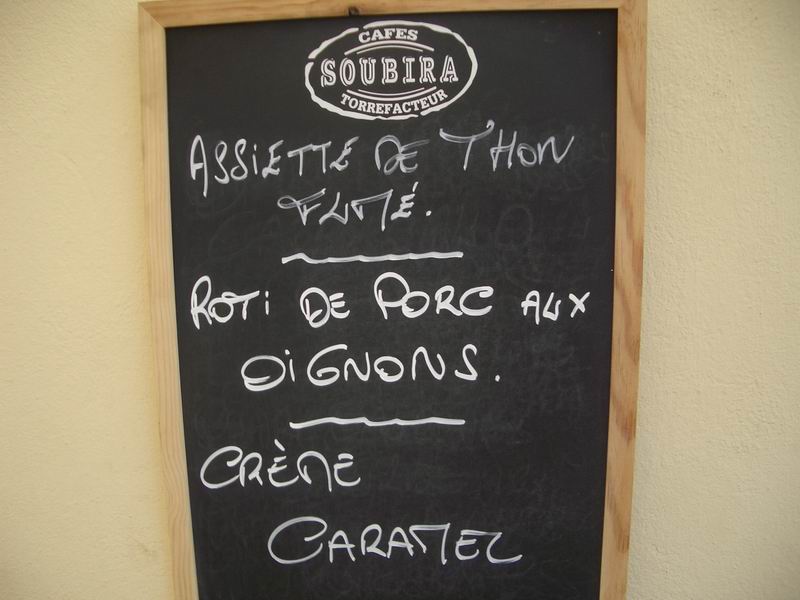 CAFES
SOUBIRA
TORREFACTEUR
ASSiETTE DE THON
FUMÉ.
ROTi DE PORC AUX
OiGNONS.
CRÈME
CARAMEL